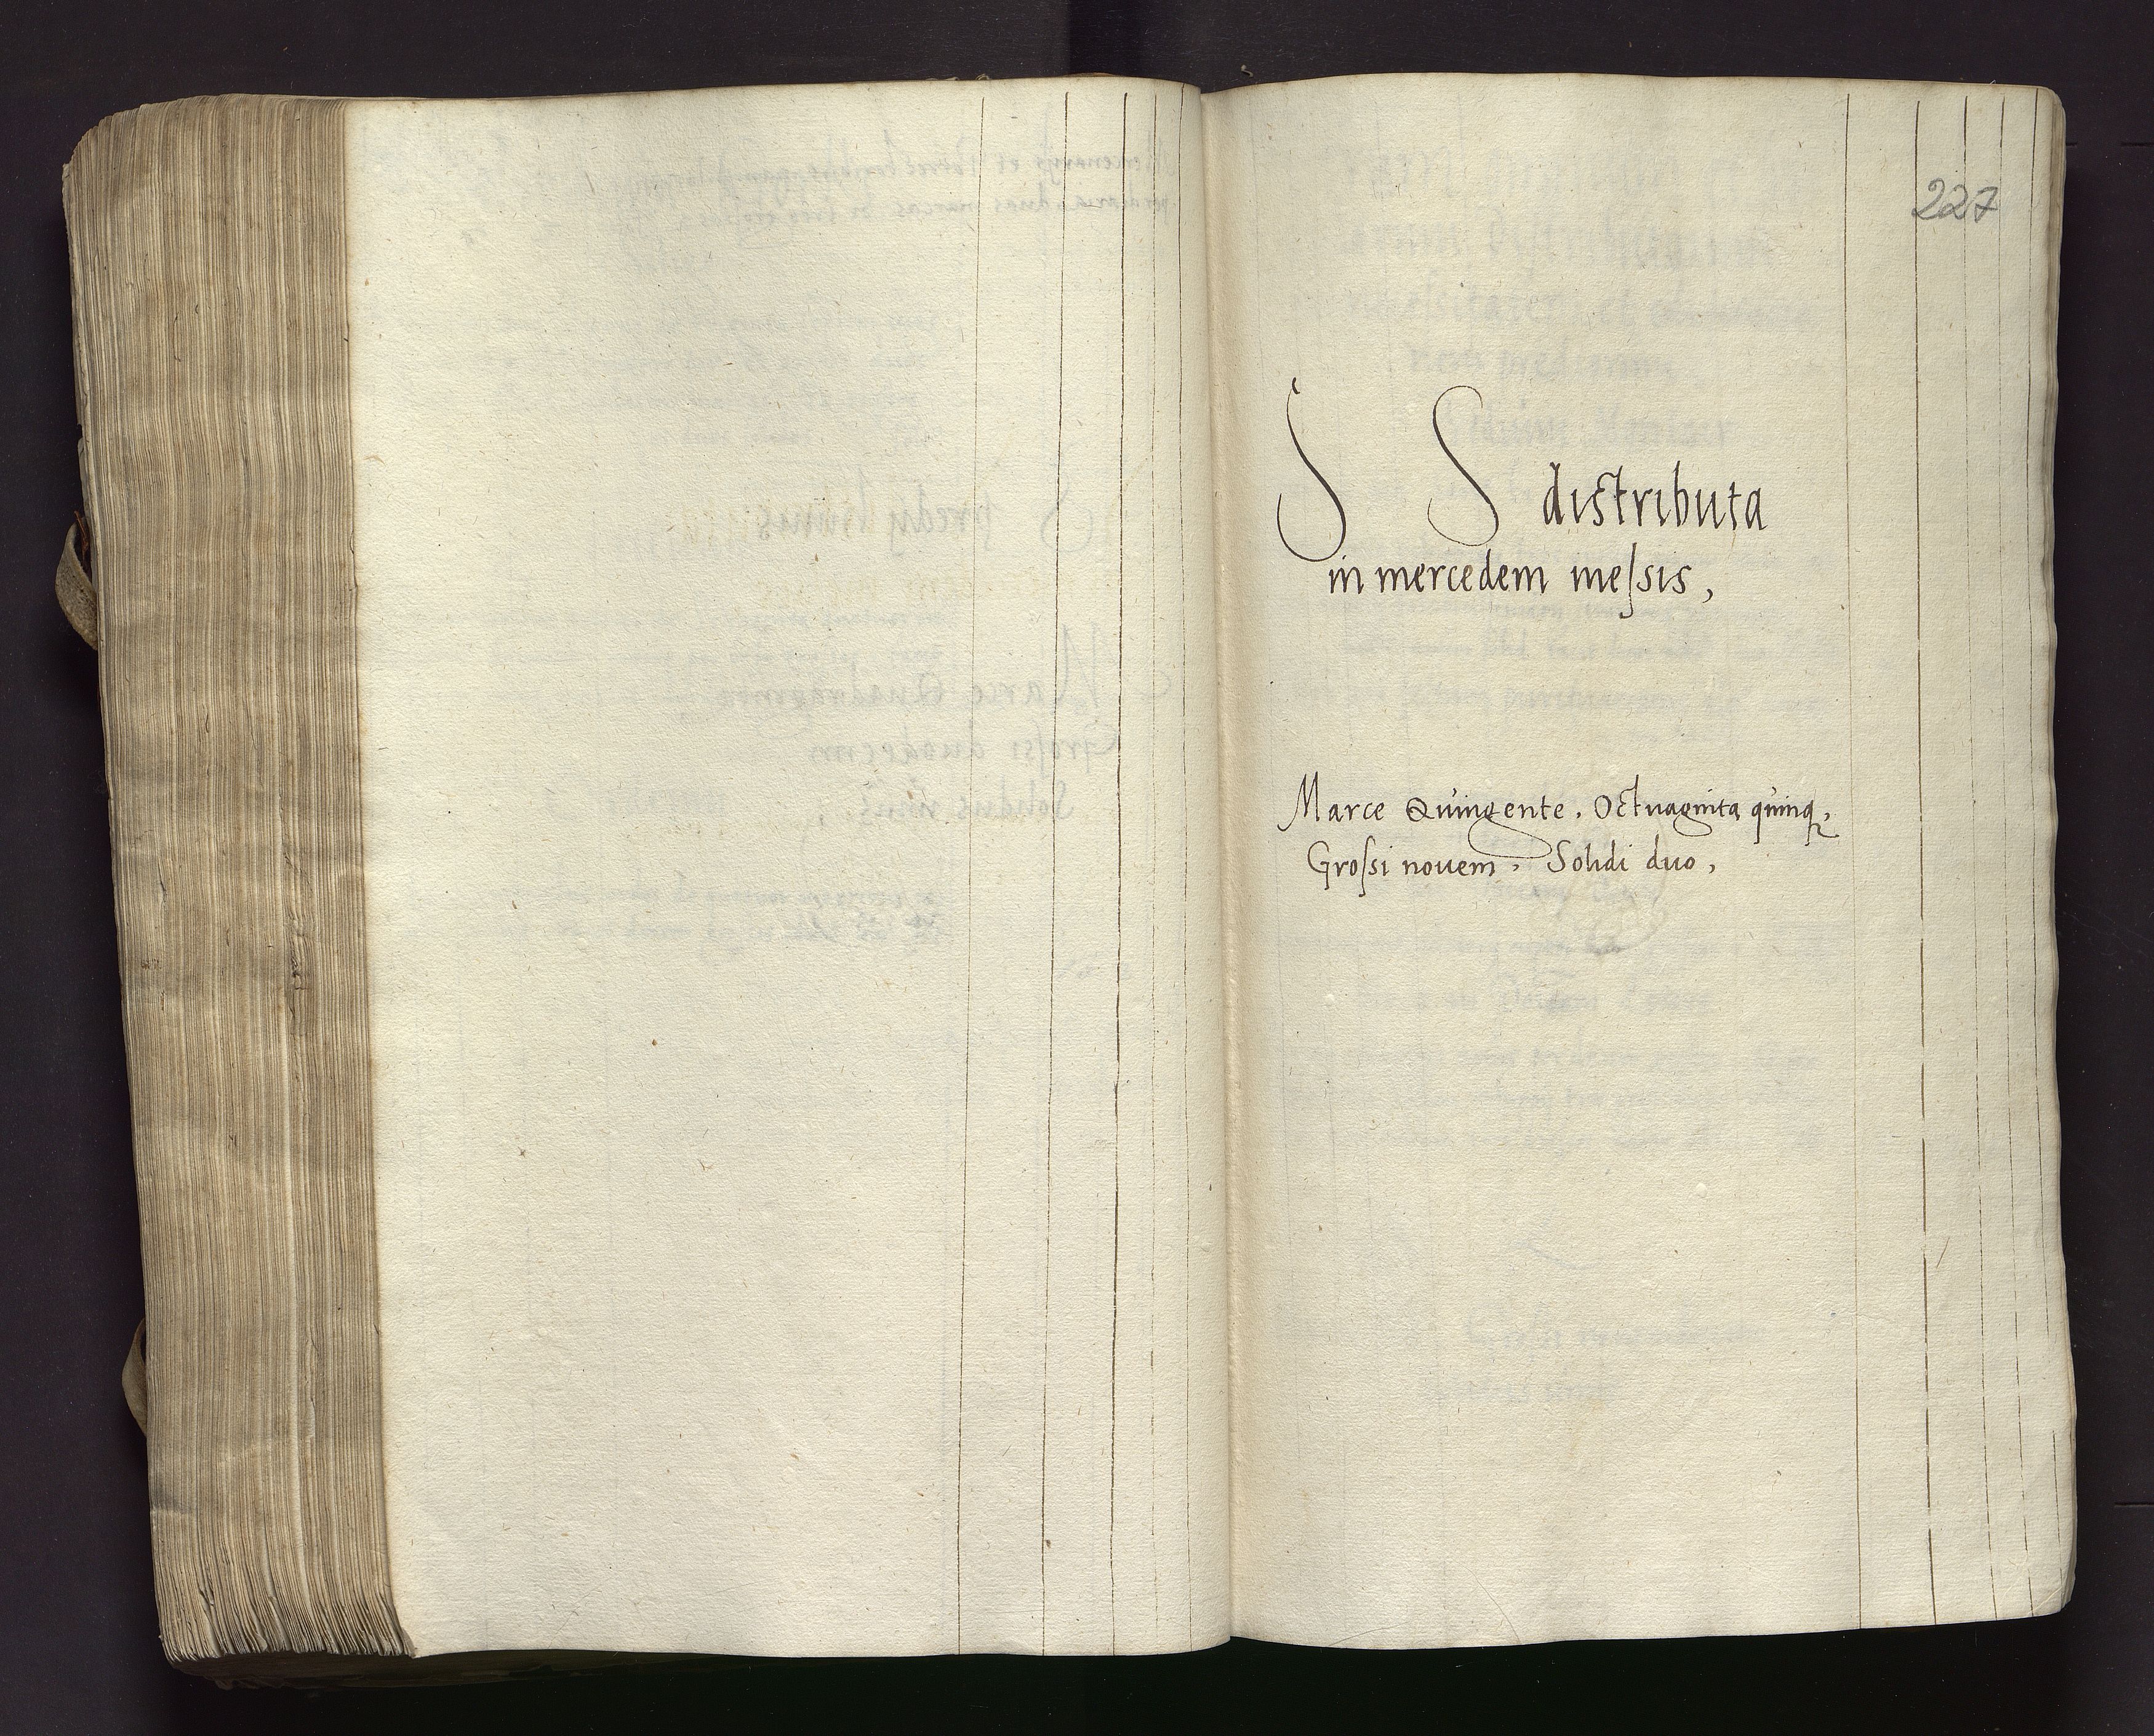 227
S S distributa
in mercedem messis,
Marce Quingente. Octuaginta quinq,
Grossi novem, Solidi duo,